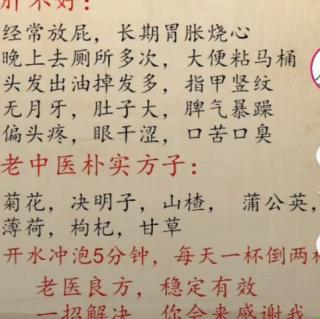 肝不好：
经常放屁，长期胃胀烧心
晚上去厕所多次，大便粘马桶
头发出油掉发多，指甲竖纹
无月牙，肚子大，脾气暴躁
偏头疼，眼干涩，口苦口臭
老中医朴实方子：
菊花，决明子，山楂， 蒲公英，
薄荷，枸杞，甘草
开水冲泡5分钟，每天一杯倒两
老医良方，稳定有效
一招解决，你会来感谢我